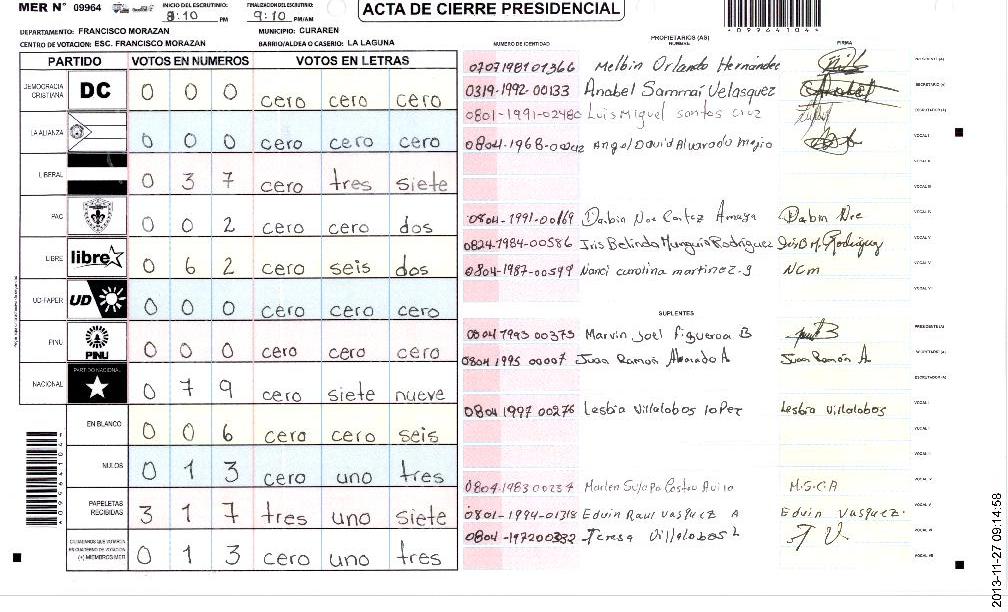 MER N° 09964
INICIO DEL ESCRUTINIO: 8:10 PM
FINALIZACION DEL ESCRUTINIO: 9:10 PM/AM
ACTA DE CIERRE PRESIDENCIAL
*09964104*
DEPARTAMENTO: FRANCISCO MORAZAN
MUNICIPIO: CURAREN
CENTRO DE VOTACION: ESC. FRANCISCO MORAZAN
BARRIO/ALDEA O CASERIO: LA LAGUNA
PARTIDO VOTOS EN NUMEROS VOTOS EN LETRAS
DEMOCRACIA CRISTIANA DC 0 0 0 cero cero cero
LA ALIANZA 0 0 0 cero cero cero
LIBERAL 0 3 7 cero tres siete
PAC 0 0 2 cero cero dos
LIBRE libre 0 6 2 cero seis dos
UD-FAPER UD 0 0 0 cero cero cero
PINU PINU 0 0 0 cero cero cero
NACIONAL PARTIDO NACIONAL 0 7 9 cero siete nueve
EN BLANCO 0 0 6 cero cero seis
NULOS 0 1 3 cero uno tres
PAPELETAS RECIBIDAS 3 1 7 tres uno siete
CIUDADANOS QUE VOTARON EN CUADERNO DE VOTACION (+) MIEMBROS MER 0 1 3 cero uno tres
NUMERO DE IDENTIDAD PROPIETARIOS (AS) NOMBRE FIRMA
0707198101366 Melbin Orlando Hernández PRESIDENTE (A)
0319-1992-00133 Anabel Sammaí Velasquez Anabel SECRETARIO (A)
0801-1991-02480 Luis Miguel santos cruz ESCRUTADOR (A)
0804-1968- Angel David Alvarado Mejio VOCAL I
VOCAL II
VOCAL III
0804-1991-00169 Darbin Noe Cortez Amaya Dabin Noe VOCAL IV
0824-1984-00586 Iris Belinda Munguia Rodriguez Iris B M. Rodriguez VOCAL V
0804-1987-00599 Nanci carolina martinez.g NCM
VOCAL VII
SUPLENTES
0804 1993 00375 Marvin Joel Figueroa B PRESIDENTE (A)
0804 1995 00007 Juan Ramón Alvarado A Juan Ramón A. SECRETARIO (A)
ESCRUTADOR (A)
0804 1997 00276 Lesbia Villalobos lopez Lesbia Villalobos VOCAL I
VOCAL II
0804-1983 00237 Marlen Suyapa Castro Avila M.S.C.A
0801-1994-01318 Eduin Raul Vasquez A Eduin Vasquez.
0804-197200382 Teresa Villalobos L T V
VOCAL VII
2013-11-27 09:14:58